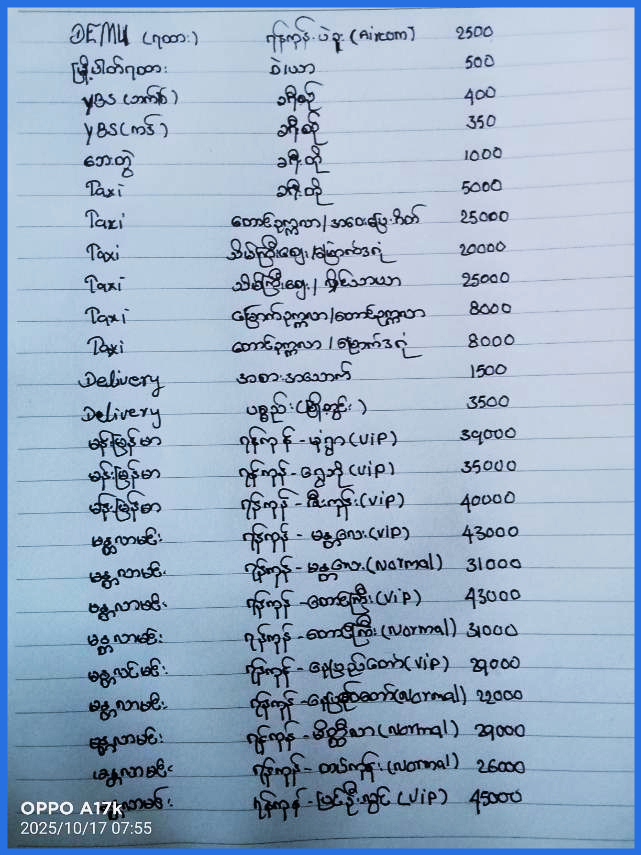 DEMU (ရထား) ရန်ကုန်-ပဲခူး (Aircom) 2500
မြို့ပတ်ရထား ဝဲ/ယာ 500
YBS (ဘတ်စ်) ခရီးစဉ် 400
YBS (ကဒ်) ခရီးစဉ် 350
ဘေးတွဲ ခရီးတို 1000
Taxi ခရီးတို 5000
Taxi တောင်ဥက္ကလာ/အဝေးပြေးဂိတ် 25000
Taxi သိမ်ကြီးဈေး/မြောက်ဒဂုံ 20000
Taxi သိမ်ကြီးဈေး/လှိုင်သာယာ 25000
Taxi မြောက်ဥက္ကလာ/တောင်ဥက္ကလာ 8000
Taxi တောင်ဥက္ကလာ/မြောက်ဒဂုံ 8000
Delivery အစားအသောက် 1500
Delivery ပစ္စည်း (မြို့တွင်း) 3500
မန်းမြန်မာ ရန်ကုန် - မုံရွာ (VIP) 39000
မန်းမြန်မာ ရန်ကုန် - ရွှေဘို (VIP) 35000
မန်းမြန်မာ ရန်ကုန် - ဇီးကုန်း (VIP) 40000
မန္တလာမင်း ရန်ကုန် - မန္တလေး (VIP) 43000
မန္တလာမင်း ရန်ကုန် - မန္တလေး (Normal) 31000
မန္တလာမင်း ရန်ကုန် - တောင်ကြီး (VIP) 43000
မန္တလာမင်း ရန်ကုန် - တောင်ကြီး (Normal) 31000
မန္တလာမင်း ရန်ကုန် - နေပြည်တော် (VIP) 29000
မန္တလာမင်း ရန်ကုန် - နေပြည်တော် (Normal) 22000
မန္တလာမင်း ရန်ကုန် - မိတ္ထီလာ (Normal) 29000
မန္တလာမင်း ရန်ကုန် - တပ်ကုန်း (Normal) 26000
မန္တလာမင်း ရန်ကုန် - ပြင်ဦးလွင် (VIP) 45000
OPPO A17k
2025/10/17 07:55